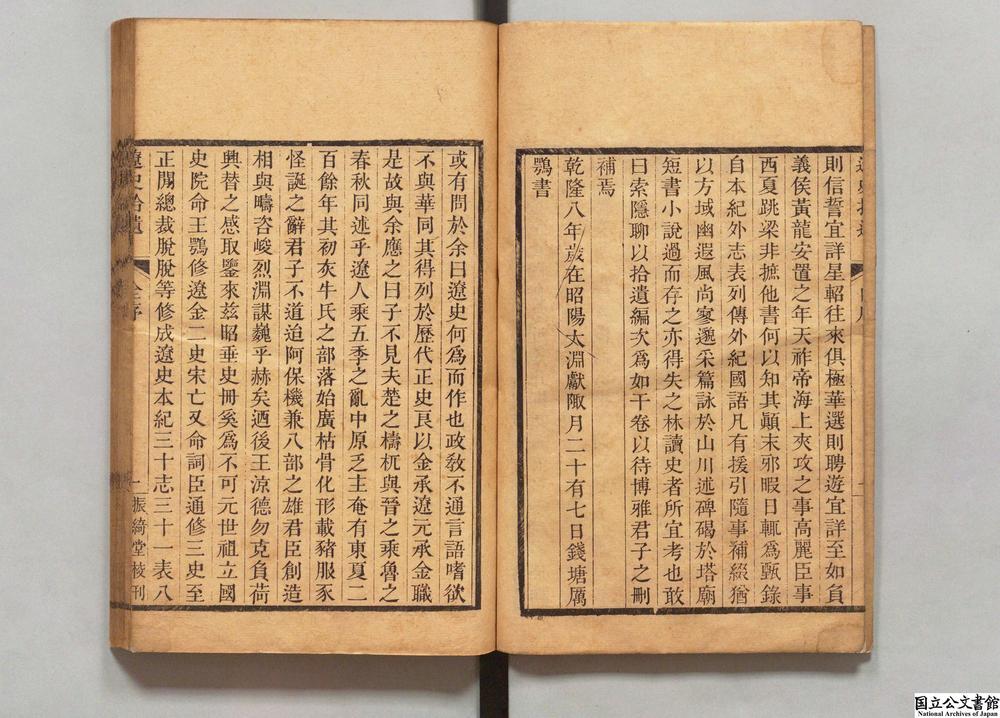 則信誓宜詳星軺往來俱極華選則聘遊宜詳至如負
義侯黃龍安置之年天祚帝海上夾攻之事高麗臣事
西夏跳梁非摭他書何以知其顛末邪暇日輒爲甄錄
自本紀外志表列傳外紀國語凡有援引隨事補綴猶
以方域幽遐風尚寥邈采篇詠於山川述碑碣於塔廟
短書小說過而存之亦得失之林讀史者所宜考也敢
曰索隱聊以拾遺編次爲如干卷以待博雅君子之刪
補焉
乾隆八年歲在昭陽大淵獻陬月二十有七日錢塘厲
鶚書
或有問於余曰遼史何爲而作也政敎不通言語嗜欲
不與華同其得列於歷代正史良以金承遼元承金職
是故與余應之曰子不見夫楚之檮杌與晉之乘魯之
春秋同述乎遼人乘五季之亂中原乏主奄有東夏二
百餘年其初灰牛氏之部落始廣枯骨化形載豬服豕
怪誕之辭君子不道迨阿保機兼八部之雄君臣創造
相與疇咨峻烈淵謀巍乎赫矣迺後王涼德勿克負荷
興替之感取鑒來茲昭垂史冊奚爲不可元世祖立國
史院命王鶚修遼金二史宋亡又命詞臣通修三史至
正閒總裁脫脫等修成遼史本紀三十志三十一表八
遼史拾遺 全序 一 振綺堂校刊
国立公文書館
National Archives of Japan